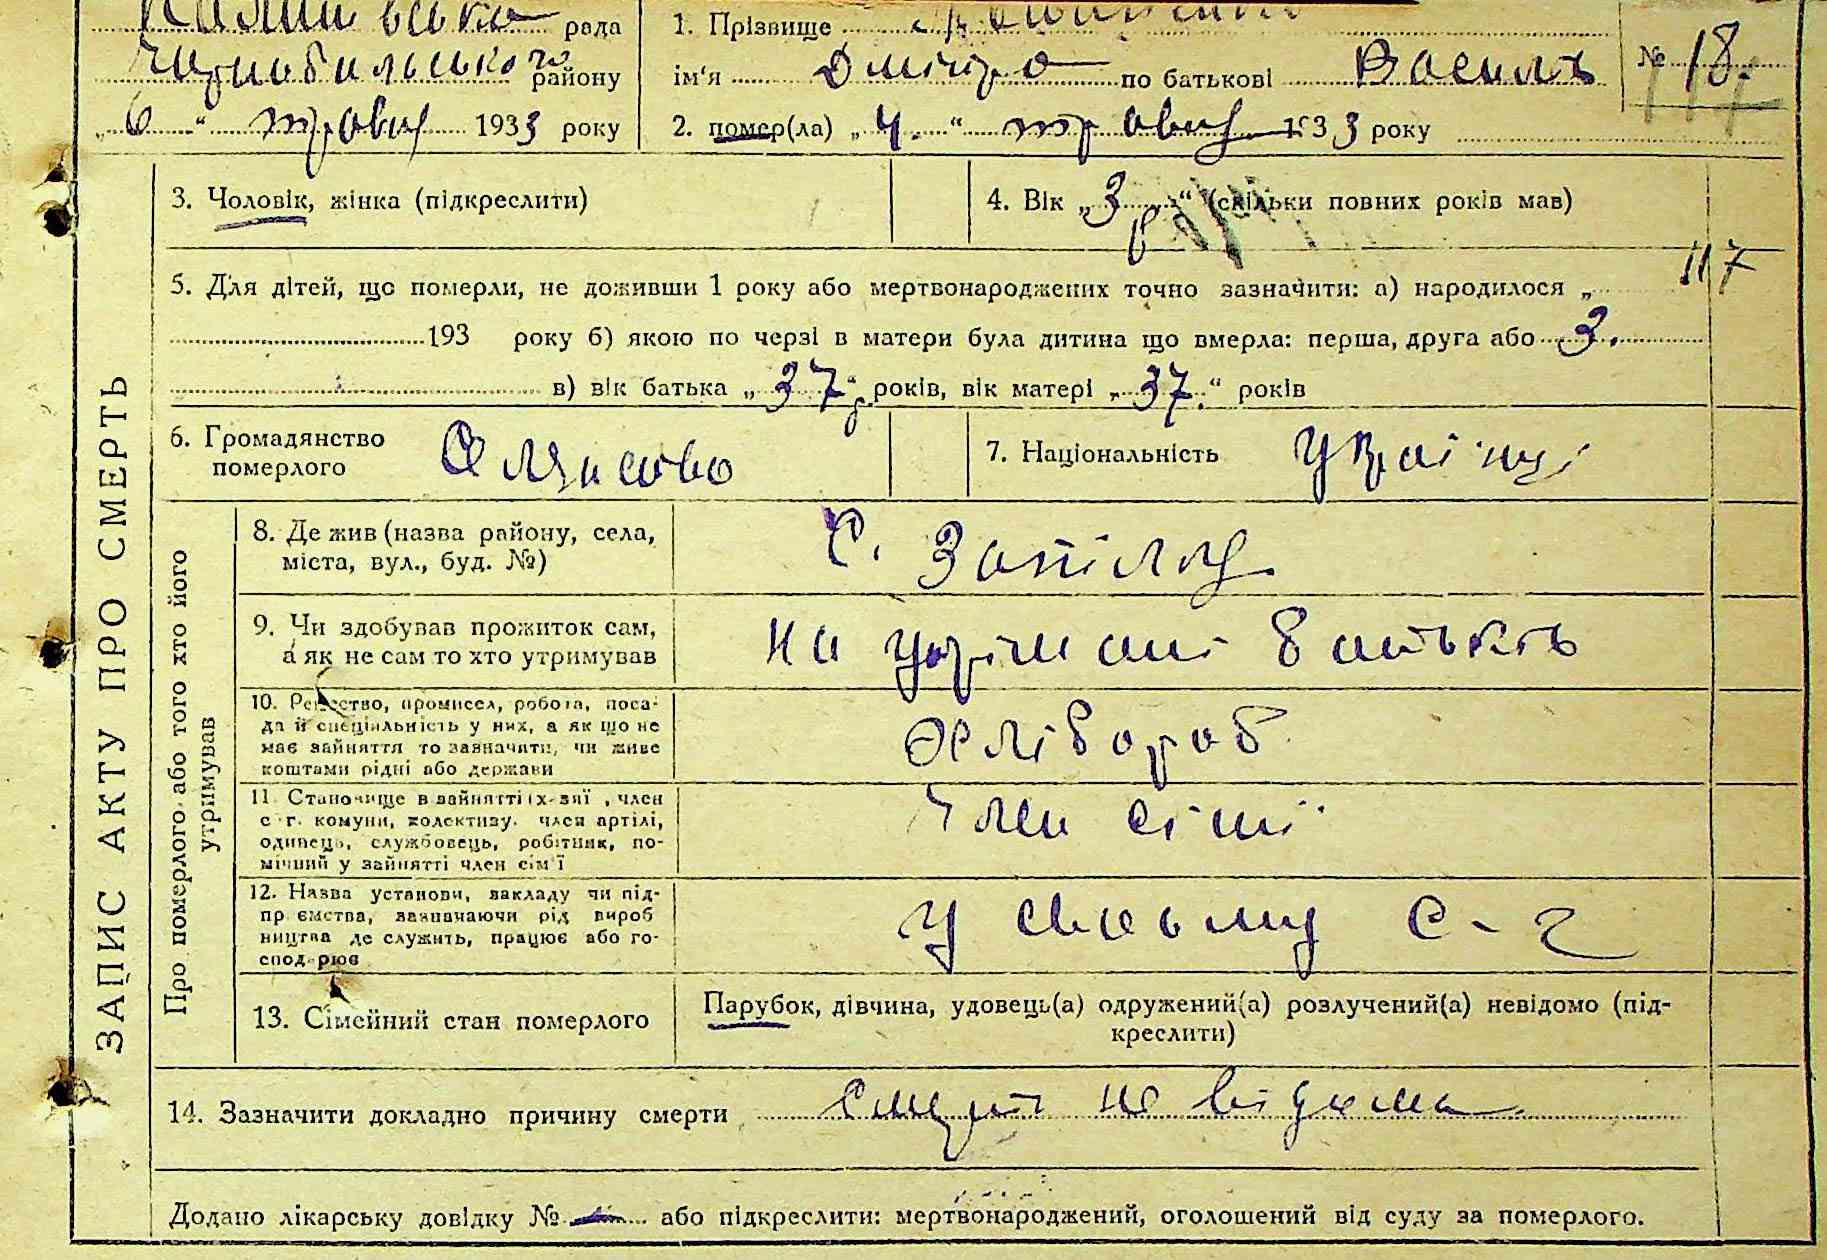 рада 1. Прізвище
Чорнобильського району ім'я Дмитро по батькові Василь № 18.
„6“ травня 1933 року 2. помер(ла) „4.“ травня 1933 року
3. Чоловік, жінка (підкреслити) 4. Вік „3 р“ (скільки повних років мав)
117
5. Для дітей, що померли, не доживши 1 року або мертвонароджених точно зазначити: а) народилося „
193 року б) якою по черзі в матери була дитина що вмерла: перша, друга або 3.
в) вік батька „37“ років, вік матері „37.“ років
6. Громадянство
померлого
7. Національність
ЗАПИС АКТУ ПРО СМЕРТЬ
Про померлого або того хто його
утримував
8. Де жив (назва району, села,
міста, вул., буд. №)
с.
9. Чи здобував прожиток сам,
а як не сам то хто утримував
на утрімані батьків
10. Ремество, промисел, робота, поса-
да й спеціяльність у них, а як що не
має зайняття то зазначити, чи живе
коштами рідні або держави
Хлібороб
11. Становище в зайнятті (х-заї , член
с г. комуни, колективу. член артілі,
одинець, службовець, робітник, по-
мічний у зайнятті член сім'ї
Член сімї
12. Назва установи, закладу чи під-
пр ємства, зазначаючи рід вироб
ництва де служить, працює або го-
спод рює
у своьму с-г
13. Сімейний стан померлого
Парубок, дівчина, удовець(а) одружений(а) розлучений(а) невідомо (під-
креслити)
14. Зазначити докладно причину смерти не відома
Додано лікарську довідку № або підкреслити: мертвонароджений, оголошений від суду за померлого.